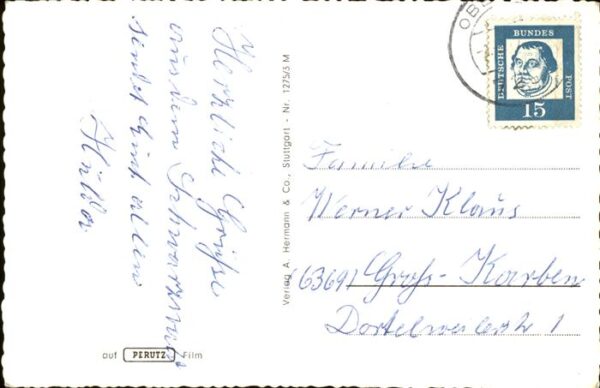 Herzliche Grüße
aus dem Schwarzwald
sendet Euch allen
auf PERUTZ Film
Verlag A. Hermann & Co., Stuttgart - Nr. 1275/3 M
DEUTSCHE BUNDES POST
15
Familie
Werner Klaus
(6369) Groß-Karben